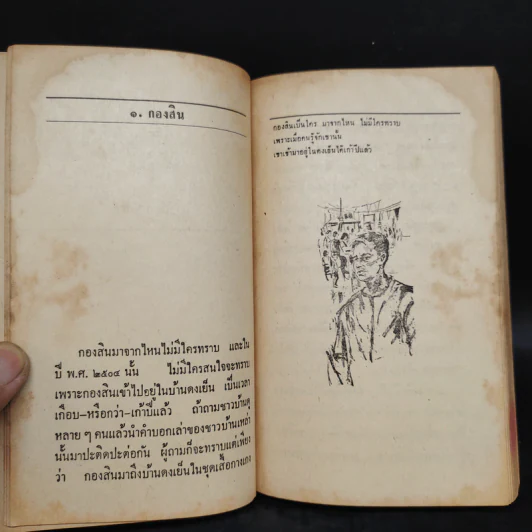 ๑. กองสิน
กองสินมาจากไหนไม่มีใครทราบ และใน
ปี พ.ศ. ๒๕๐๔ นั้น ไม่มีใครสนใจจะทราบ
เพราะกองสินเข้าไปอยู่ในบ้านดงเย็น เป็นเวลา
เกือบ-หรือกว่า-เก้าปีแล้ว ถ้าถามชาวบ้านดู
หลาย ๆ คนแล้วนำคำบอกเล่าของชาวบ้านเหล่า
นั้นมาปะติดปะต่อกัน ผู้ถามก็จะทราบแต่เพียง
ว่า กองสินมาถึงบ้านดงเย็นในชุดเสื้อกางเกง
กองสินเป็นใคร มาจากไหน ไม่มีใครทราบ
เพราะเมื่อคนรู้จักเขานั้น
เขาเข้ามาอยู่ในดงเย็นได้เก้าปีแล้ว